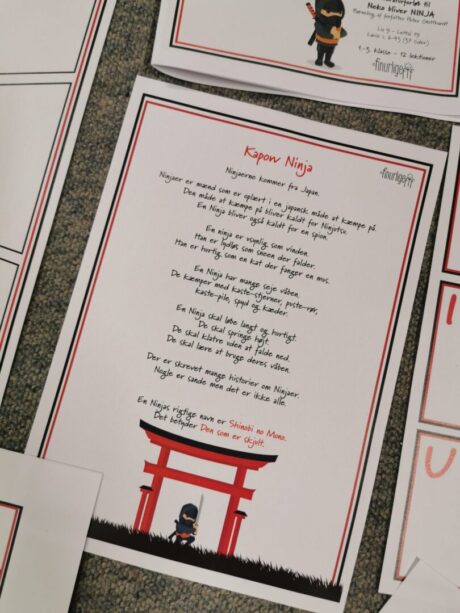 Neko bliver NINJA
1.-3. klasse - 12 lektioner
finurligefif
Kapow Ninja
finurligefif
Ninjaerne kommer fra Japan.
Ninjaer er mænd som er oplært i en japansk måde at kæmpe på.
Den måde at kæmpe på bliver kaldt for Ninjutsu.
En Ninja bliver også kaldt for en spion.
En ninja er usynlig som vinden.
Han er lydløs som sneen der falder.
Han er hurtig som en kat der fanger en mus.
En Ninja har mange seje våben.
De kæmper med kaste-stjerner, puste-rør,
kaste-pile, spyd og kæder.
En Ninja skal løbe langt og hurtigt.
De skal springe højt.
De skal klatre uden at falde ned.
De skal lære at bruge deres våben.
Der er skrevet mange historier om Ninjaer.
Nogle er sande men det er ikke alle.
En Ninjas rigtige navn er Shinobi no Mono.
Det betyder Den som er skjult.
I
U